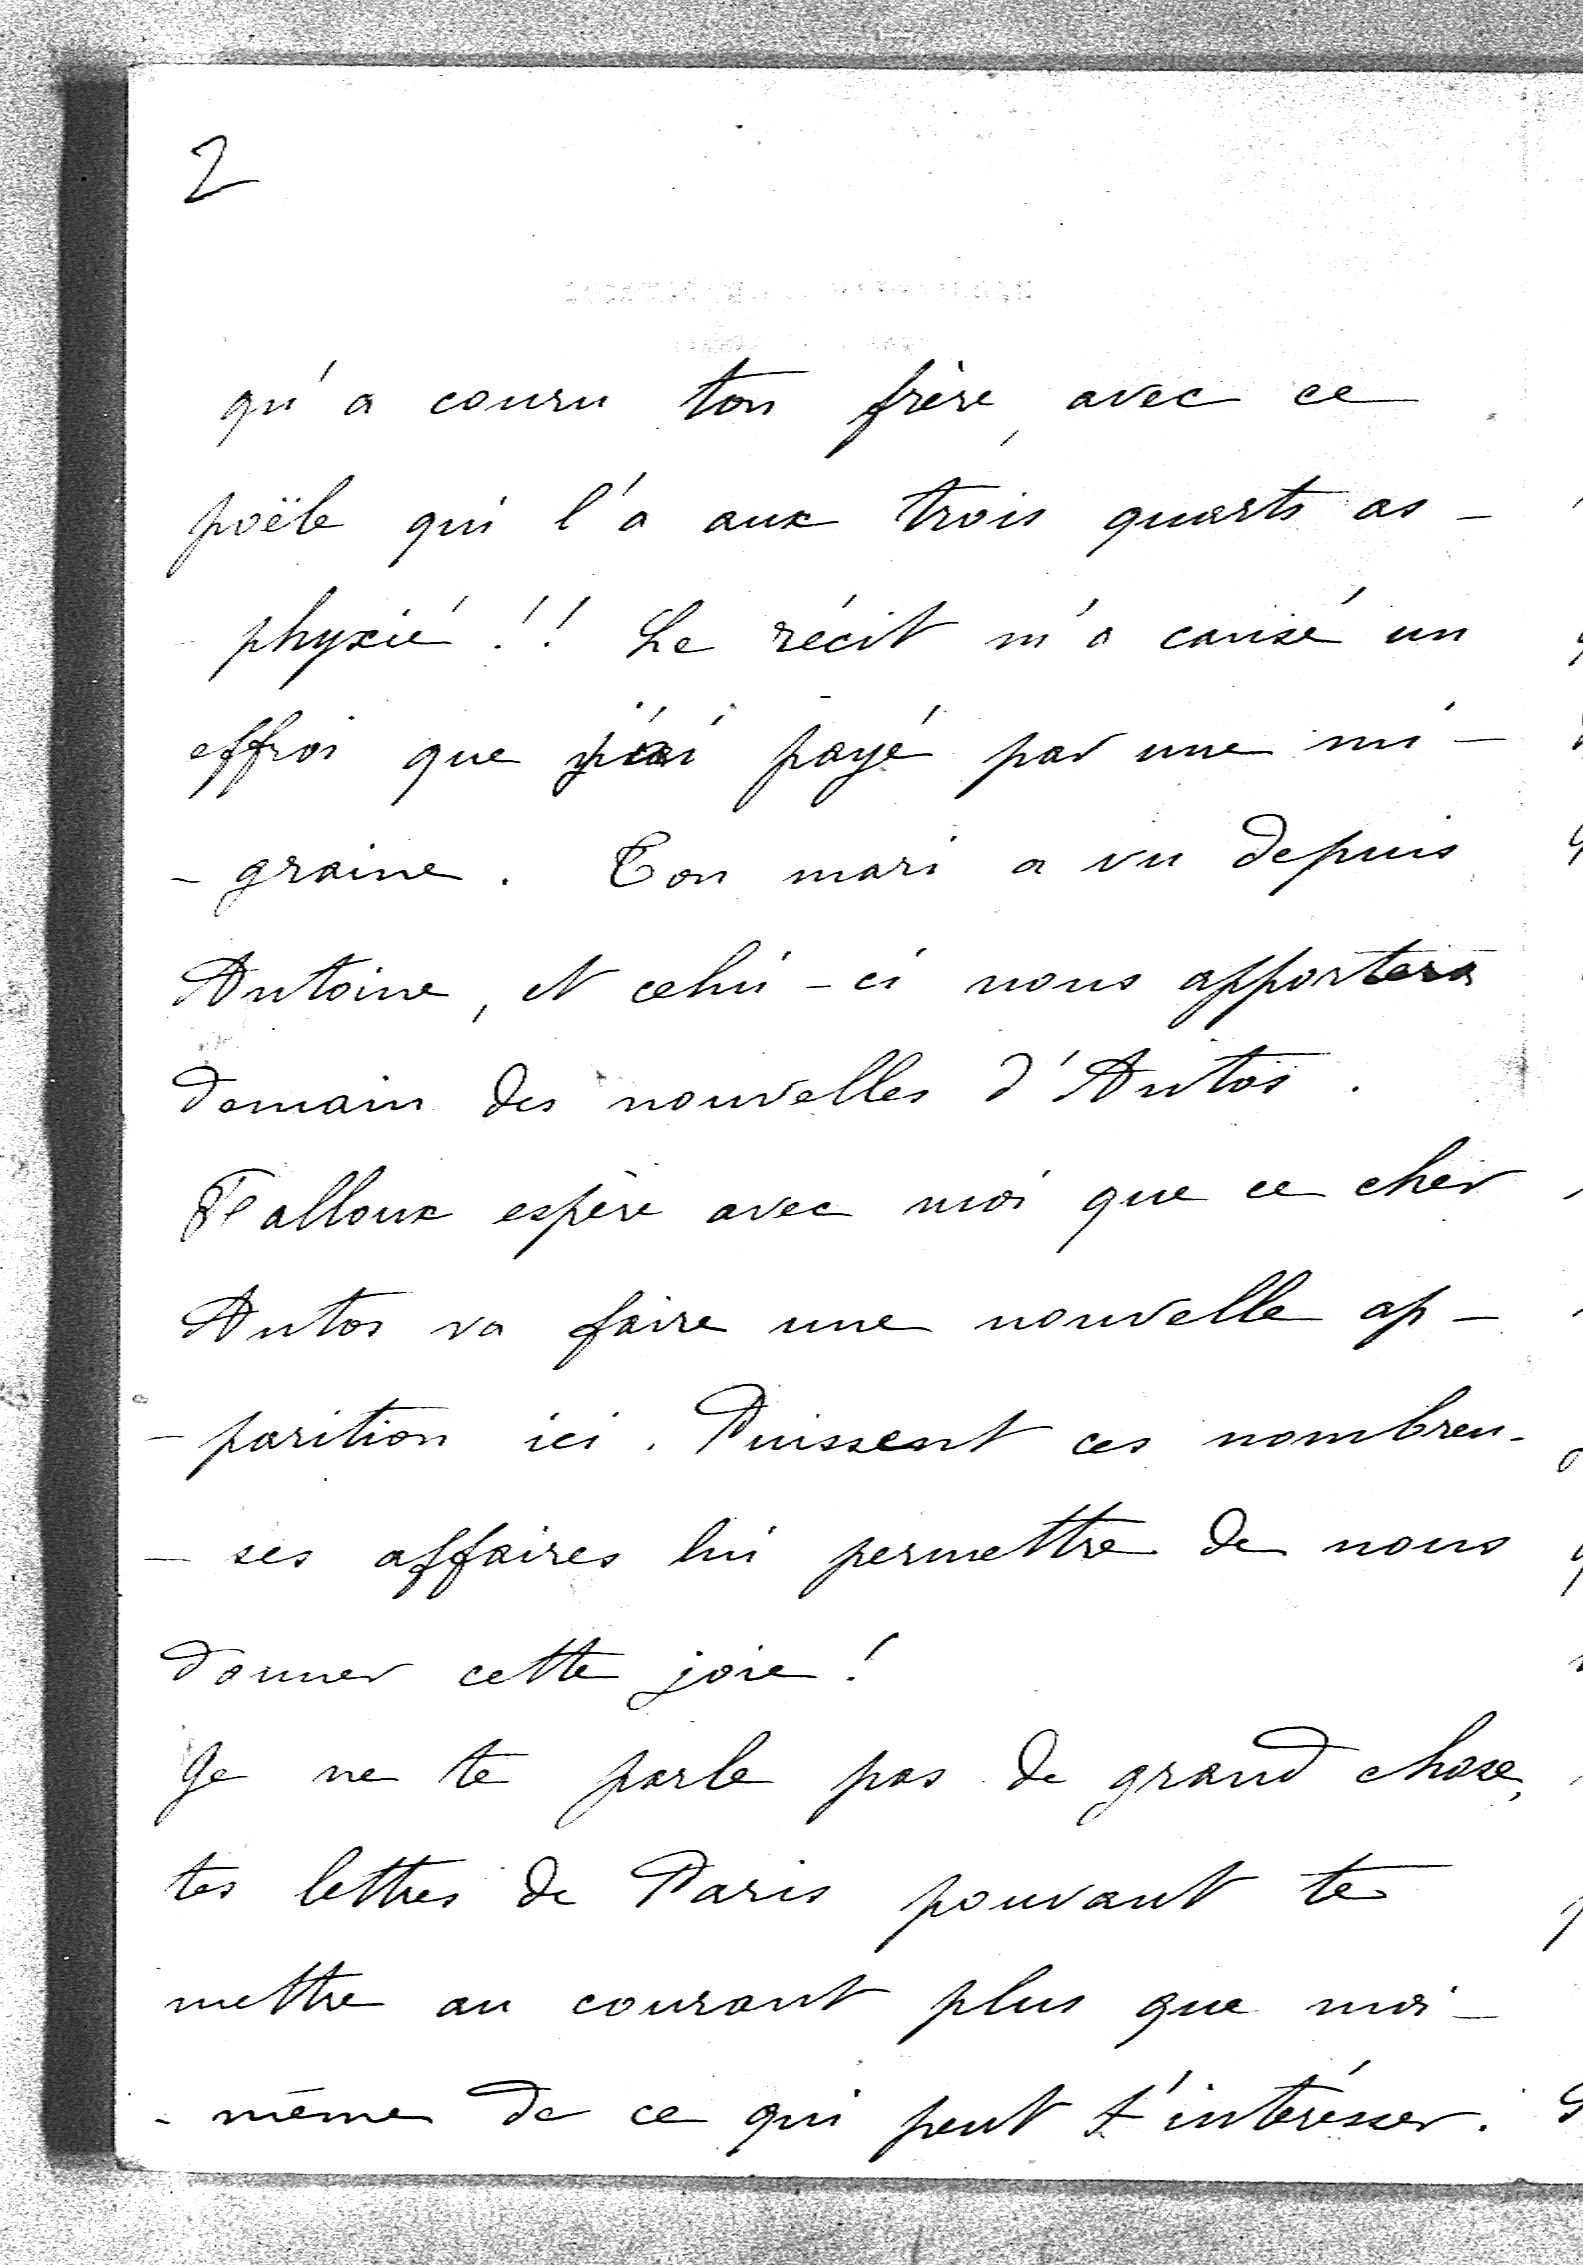 2
qu'a couru ton frère, avec ce
poële qui l'a aux trois quarts as-
phyxié!! Le récit m'a causé un
effroi que j'ai payé par une mi-
-graine. Ton mari a vu depuis
Antoine, et celui-ci nous apportera
demain des nouvelles d'Antos.
Falloux espère avec moi que ce cher
Antos va faire une nouvelle ap-
-parition ici. Puissent ces nombreu-
-ses affaires lui permettre de nous
donner cette joie!
Je ne te parle pas de grand chose,
tes lettres de Paris pouvant te
mettre au courant plus que moi-
-même de ce qui peut t'intéresser.